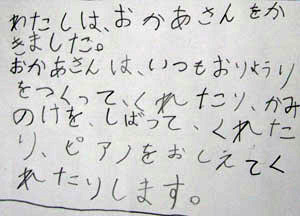 わたしは、おかあさんをか
きました。
おかあさんは、いつもおりょうり
をつくって、くれたり、かみ
のけを、しばって、くれた
り、ピアノをおしえてく
れたりします。